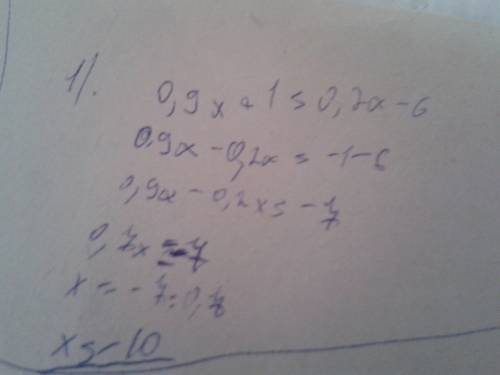 1).
0,9x + 1 = 0,2x - 6
0,9x - 0,2x = -1 - 6
0,9x - 0,2x = -7
0,7x = -7
x = -7 : 0,7
x = -10